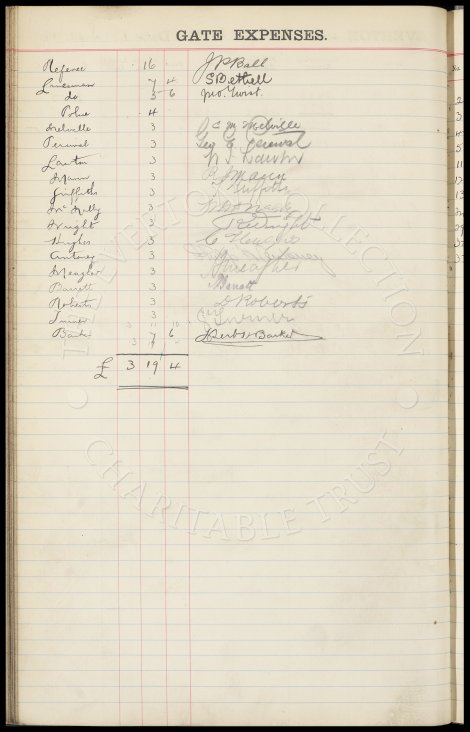 GATE EXPENSES.
Referee 16 J P Ball
Linesman 7 4 S Bethell
do 5 6 Jno. Twist
Police 4
Melville 3 Melville
Percival 3 Geo Percival
Lawton 3 Lawton
Mann 3 R J Mann
Griffiths 3 Griffiths
McNally 3
Wright 3 R Wright
Hughes 3 C Hughes
3
Meagher 3 Meagher
Barrett 3 Barrett
Roberts 3 D Roberts
3
Barker 7 6 Herbt Barker
£ 3 19 4
EVERTON COLLECTION
CHARITABLE TRUST